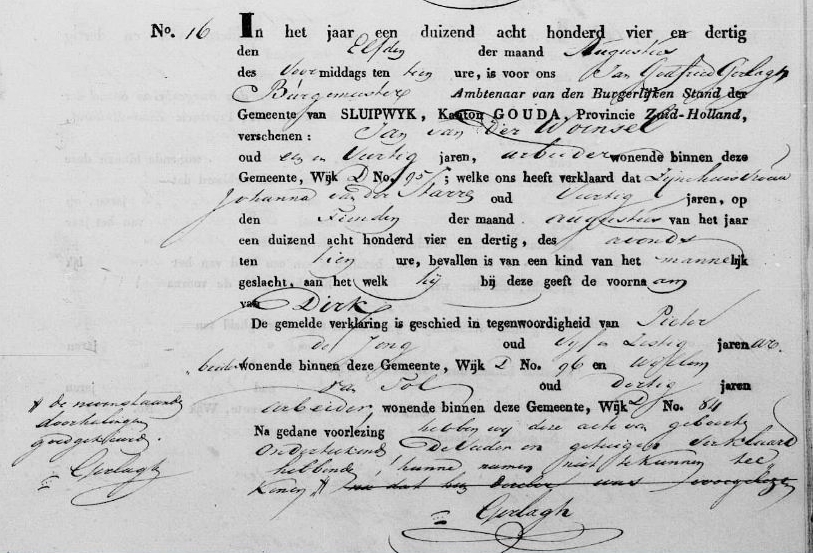 No. 16 In het jaar een duizend acht honderd vier en dertig
den Elfden der maand Augustus
des Voormiddags ten tien ure, is voor ons Jan Godfried Gerlagh
Burgemeester Ambtenaar van den Burgerlijken Stand der
Gemeente van SLUIPWYK, Kanton GOUDA, Provincie Zuid-Holland,
verschenen: Jan van der Woensel
oud een en Veertig jaren, arbeider wonende binnen deze
Gemeente, Wijk D No. 95; welke ons heeft verklaard dat Zijne huisvrouw
Johanna van der Starre oud Veertig jaren, op
den Tienden der maand augustus van het jaar
een duizend acht honderd vier en dertig, des avonds
ten tien ure, bevallen is van een kind van het mannelijk
geslacht, aan het welk hij bij deze geeft de voornaam
van Dirk
De gemelde verklaring is geschied in tegenwoordigheid van Pieter
de Jong oud Vijf en Zestig jaren ar
beider wonende binnen deze Gemeente, Wijk D No. 96 en Willem
van Tol oud dertig jaren
arbeider, wonende binnen deze Gemeente, Wijk D No. 84
Na gedane voorlezing hebben wij deze acte van geboorte
Onderteekend De Vader en getuigen Verklaard
hebbende hunne namen niet te kunnen tee
kenen na dat hen voorgelezen
Gerlagh
de nevenstaande
doorhalingen
goedgekeurd.
Gerlagh